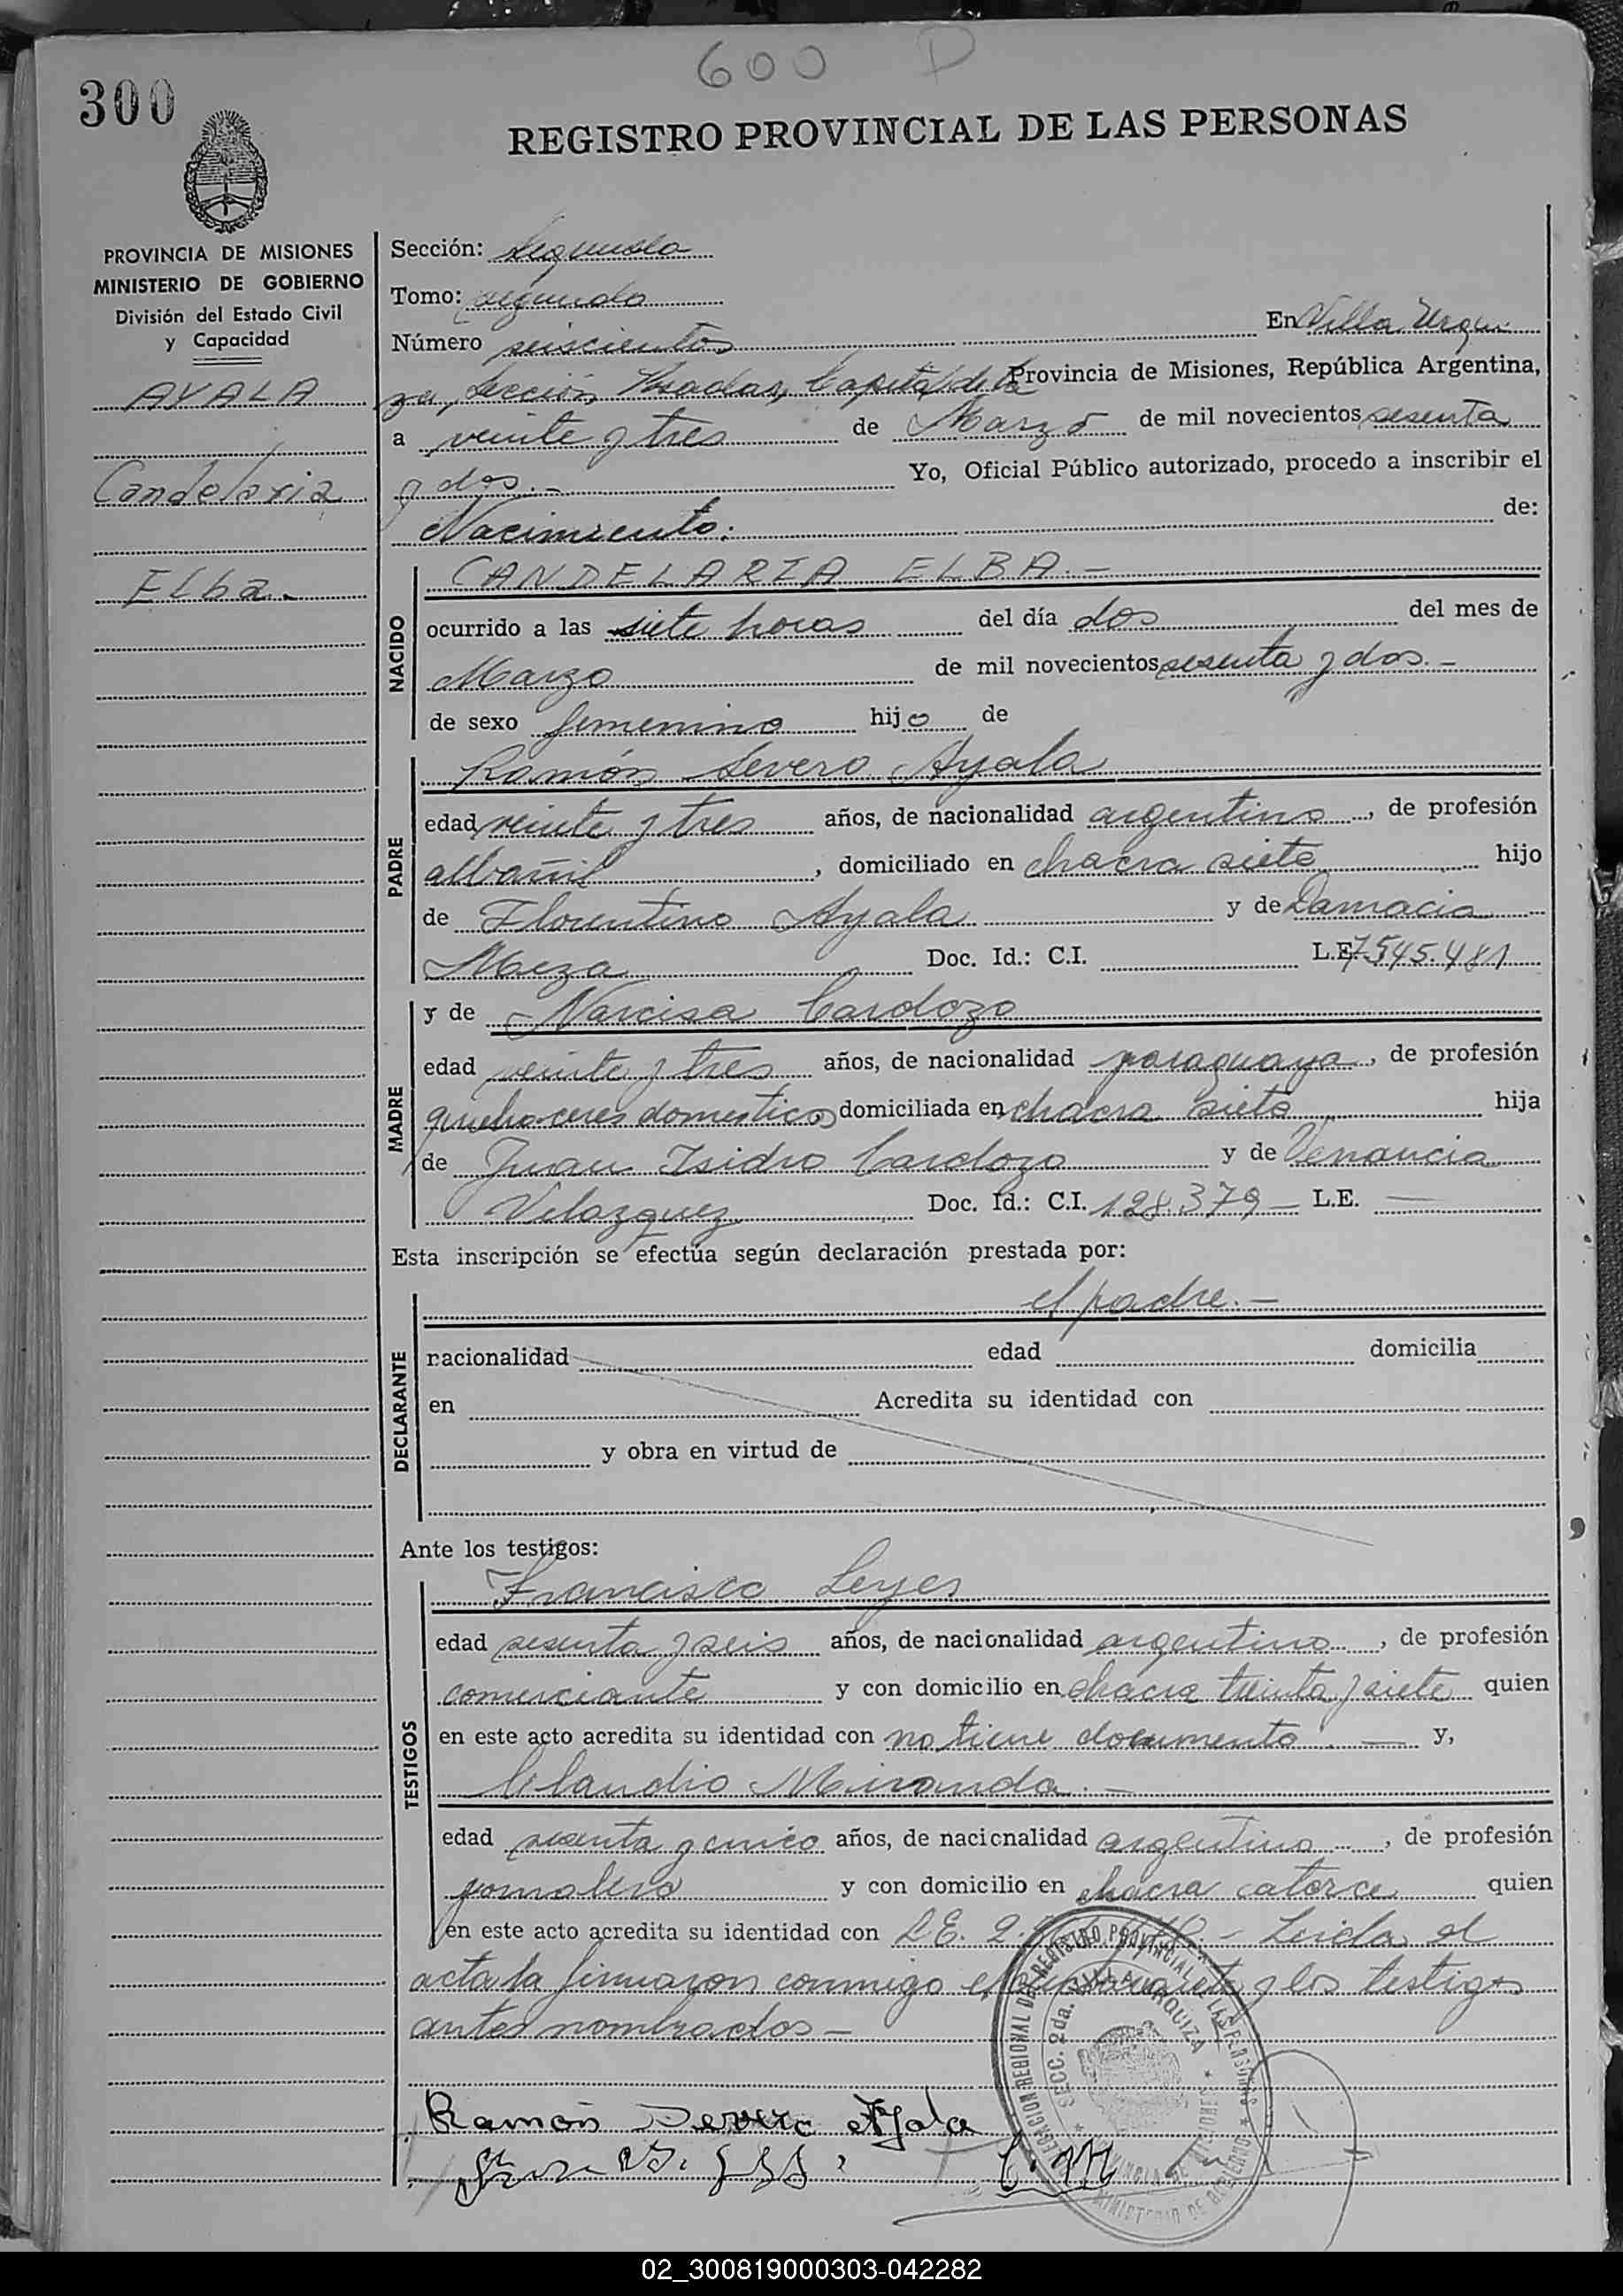 600 D
300
REGISTRO PROVINCIAL DE LAS PERSONAS
PROVINCIA DE MISIONES
MINISTERIO DE GOBIERNO
División del Estado Civil
y Capacidad
AYALA
Candelaria
Elba.
Sección: Segunda
Tomo: segundo
Número seiscientos En Villa Urqui
za, Sección Posadas, Capital de la Provincia de Misiones, República Argentina,
a veinte y tres de Marzo de mil novecientos sesenta
y dos.- Yo, Oficial Público autorizado, procedo a inscribir el
Nacimiento: de:
NACIDO
CANDELARIA ELBA.-
ocurrido a las siete horas del día dos del mes de
Marzo de mil novecientos sesenta y dos.-
de sexo femenino hijo de
PADRE
Ramón Severo Ayala
edad veinte y tres años, de nacionalidad argentino, de profesión
albañil, domiciliado en chacra siete hijo
de Florentino Ayala y de Damacia
Meza Doc. Id.: C.I. L.E. 7.545.481
MADRE
y de Narcisa Cardozo
edad veinte y tres años, de nacionalidad paraguaya, de profesión
quehaceres domesticos domiciliada en chacra siete hija
de Juan Isidro Cardozo y de Venancia
Velazquez Doc. Id.: C.I. 128.379 - L.E. —
Esta inscripción se efectúa según declaración prestada por:
DECLARANTE
el padre.-
nacionalidad edad domicilia
en Acredita su identidad con
y obra en virtud de
Ante los testigos:
TESTIGOS
Francisco Leyes
edad sesenta y seis años, de nacionalidad argentino, de profesión
comerciante y con domicilio en chacra treinta y siete quien
en este acto acredita su identidad con no tiene documento. — y,
Claudio Miranda.-
edad sesenta y cinco años, de nacionalidad argentino, de profesión
jornalero y con domicilio en chacra catorce quien
en este acto acredita su identidad con L.E. 2. - Leida el
acta la firmaron conmigo el y los testigos
antes nombrados -
DELEGACION REGIONAL DEL REGISTRO PROVINCIAL DE LAS PERSONAS
SECC. 2da. VILLA URQUIZA
PROVINCIA DE MISIONES
MINISTERIO DE GOBIERNO
Ramón Severo Ayala
02_300819000303-042282